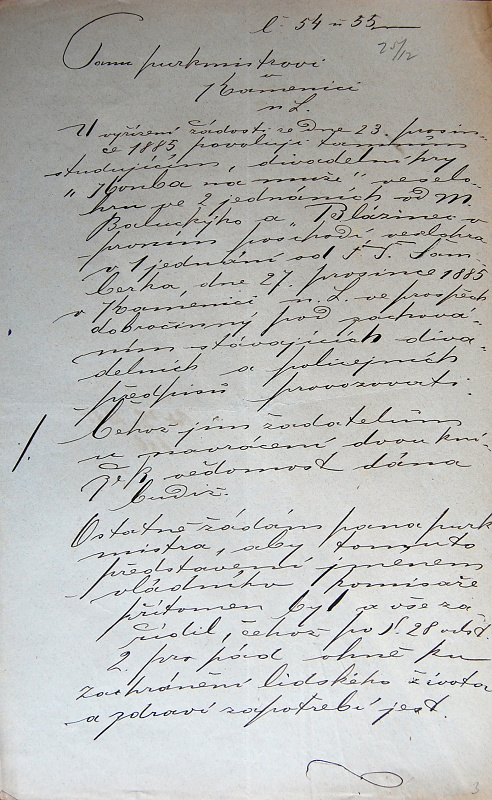 č. 54 u 55
25/12
Panu purkmistrovi
v
Kamenici
n. L.
U vyřízení žádosti ze dne 23. prosin-
ce 1885 povoluji tamním
studujícím, divadelní hry
"Honba na muže", veselo-
hru ve 2 jednáních od M.
Baluckýho a "Blázinec v
prvním poschodí" veselohra
v 1 jednání od F. F. Šam-
berka, dne 27. prosince 1885
v Kamenici n. L. ve prospěch
dobročinný pod zachová-
ním stávajících diva-
delních a policejních
předpisů provozovati.
Čehož jim žadatelům
u navrácení dvou kní-
žek vědomost dána
budiž.
Ostatně žádám pana purk
mistra, aby tomuto
představení jménem
vládního komisaře
přítomen byl a vše za
řídil, čehož po §. 28 odst.
2. pro pád ohně ku
zachránění lidského života
a zdraví zapotřebí jest.
3